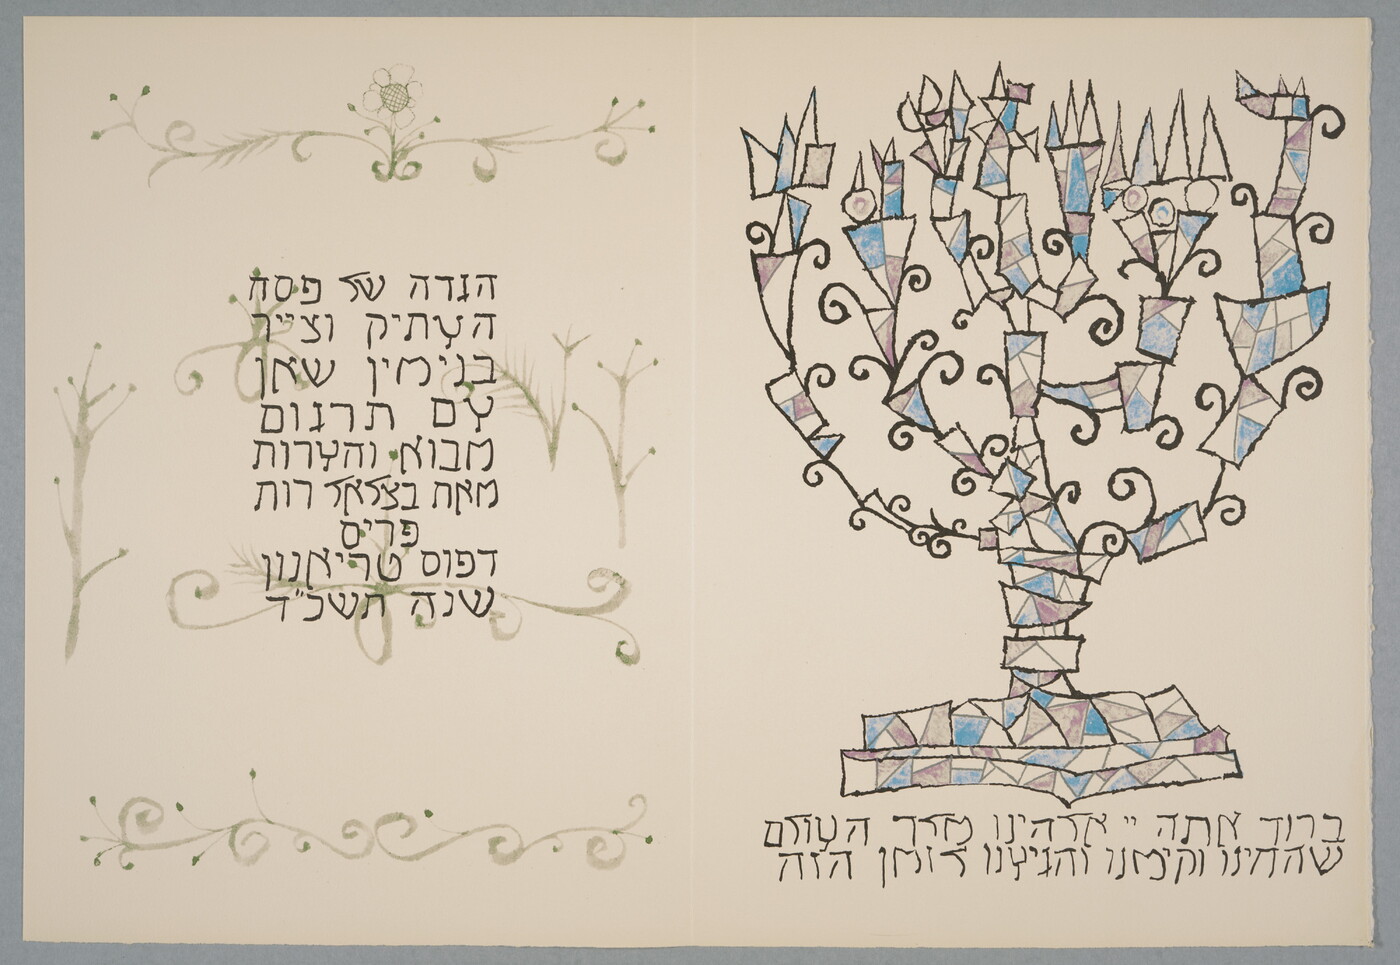 הגדה של פסח
העתיק וצייר
בנימין שאן
עם תרגום
מבוא והערות
מאת בצלאל רות
פריס
דפוס טריאנון
שנה תשכ״ד
ברוך אתה יי אלהינו מלך העולם
שהחינו וקימנו והגיענו לזמן הזה